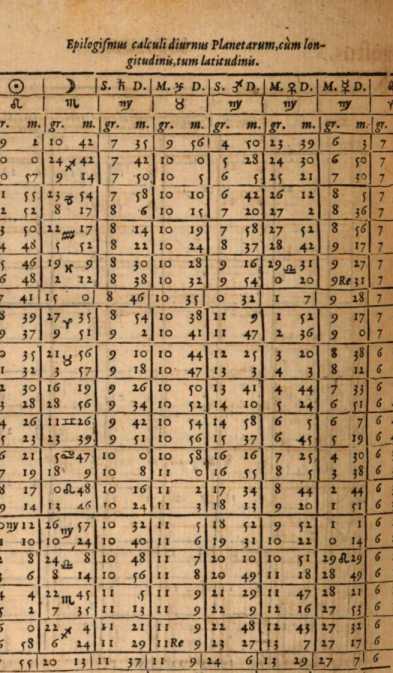 Epilogiſmus calculi diurnus Planetarum, cùm lon-
gitudinis, tum latitudinis.
☉ ☽ S. ♄ D. M. ♃ D. S. ♂ D. M. ♀ D. M. ☿ D.
♌ ♏ ♍ ♉ ♍ ♍ ♍
r. m. gr. m. gr. m. gr. m. gr. m. gr. m. gr. m. gr.
9 2 10 42 7 35 9 56 4 50 23 39 6 3 7
0 0 24 ♐ 42 7 42 10 0 5 28 24 30 6 50 7
0 57 9 14 7 50 10 5 6 5 25 21 7 10 7
1 55 23 ♑ 54 7 58 10 10 6 42 26 12 8 5 7
2 52 8 17 8 6 10 15 7 20 27 2 8 36 7
3 50 22 ♒ 17 8 14 10 19 7 58 27 52 8 56 7
4 48 5 52 8 22 10 24 8 37 28 42 9 17 7
5 46 19 ♓ 9 8 30 10 28 9 16 29 ♎ 31 9 27 7
6 48 2 12 8 38 10 32 9 54 0 20 9 Re 31 7
7 41 15 0 8 46 10 35 0 32 1 7 9 28 7
8 39 27 ♈ 35 8 54 10 38 11 9 1 52 9 17 7
9 37 9 51 9 2 10 41 11 47 2 36 9 0 7
0 35 21 ♉ 56 9 10 10 44 12 25 3 20 8 38 6
1 32 3 57 9 18 10 47 13 3 4 3 8 12 6
2 30 16 19 9 26 10 50 13 41 4 44 7 33 6
3 28 28 56 9 34 10 52 14 10 5 24 6 51 6
4 26 11 ♊ 26 9 42 10 54 14 58 6 5 6 7 6
5 23 23 39 9 51 10 56 15 37 6 45 5 19 6
6 21 5 ♋ 47 10 0 10 58 16 16 7 25 4 30 6
7 19 18 9 10 8 11 0 16 55 8 5 3 38 6
8 17 0 ♌ 48 10 16 11 2 17 34 8 44 2 44 6
9 14 13 46 10 24 11 3 18 13 9 20 1 51 6
0 ♍ 12 26 ♍ 57 10 32 11 5 18 52 9 52 1 1 6
1 10 10 24 10 40 11 6 19 31 10 22 0 14 6
2 8 24 ♎ 8 10 48 11 7 20 10 10 51 29 ♌ 29 6
3 6 8 14 10 56 11 8 20 49 11 18 28 49 6
4 4 22 ♏ 45 11 5 11 9 21 29 11 47 28 21 6
5 2 7 35 11 13 11 9 22 9 12 16 27 53 6
6 0 22 ♐ 4 11 21 11 9 22 48 12 43 27 32 6
6 58 6 24 11 29 11 Re 9 23 27 13 7 27 17 6
55 20 13 11 37 11 9 24 6 13 29 27 7 6